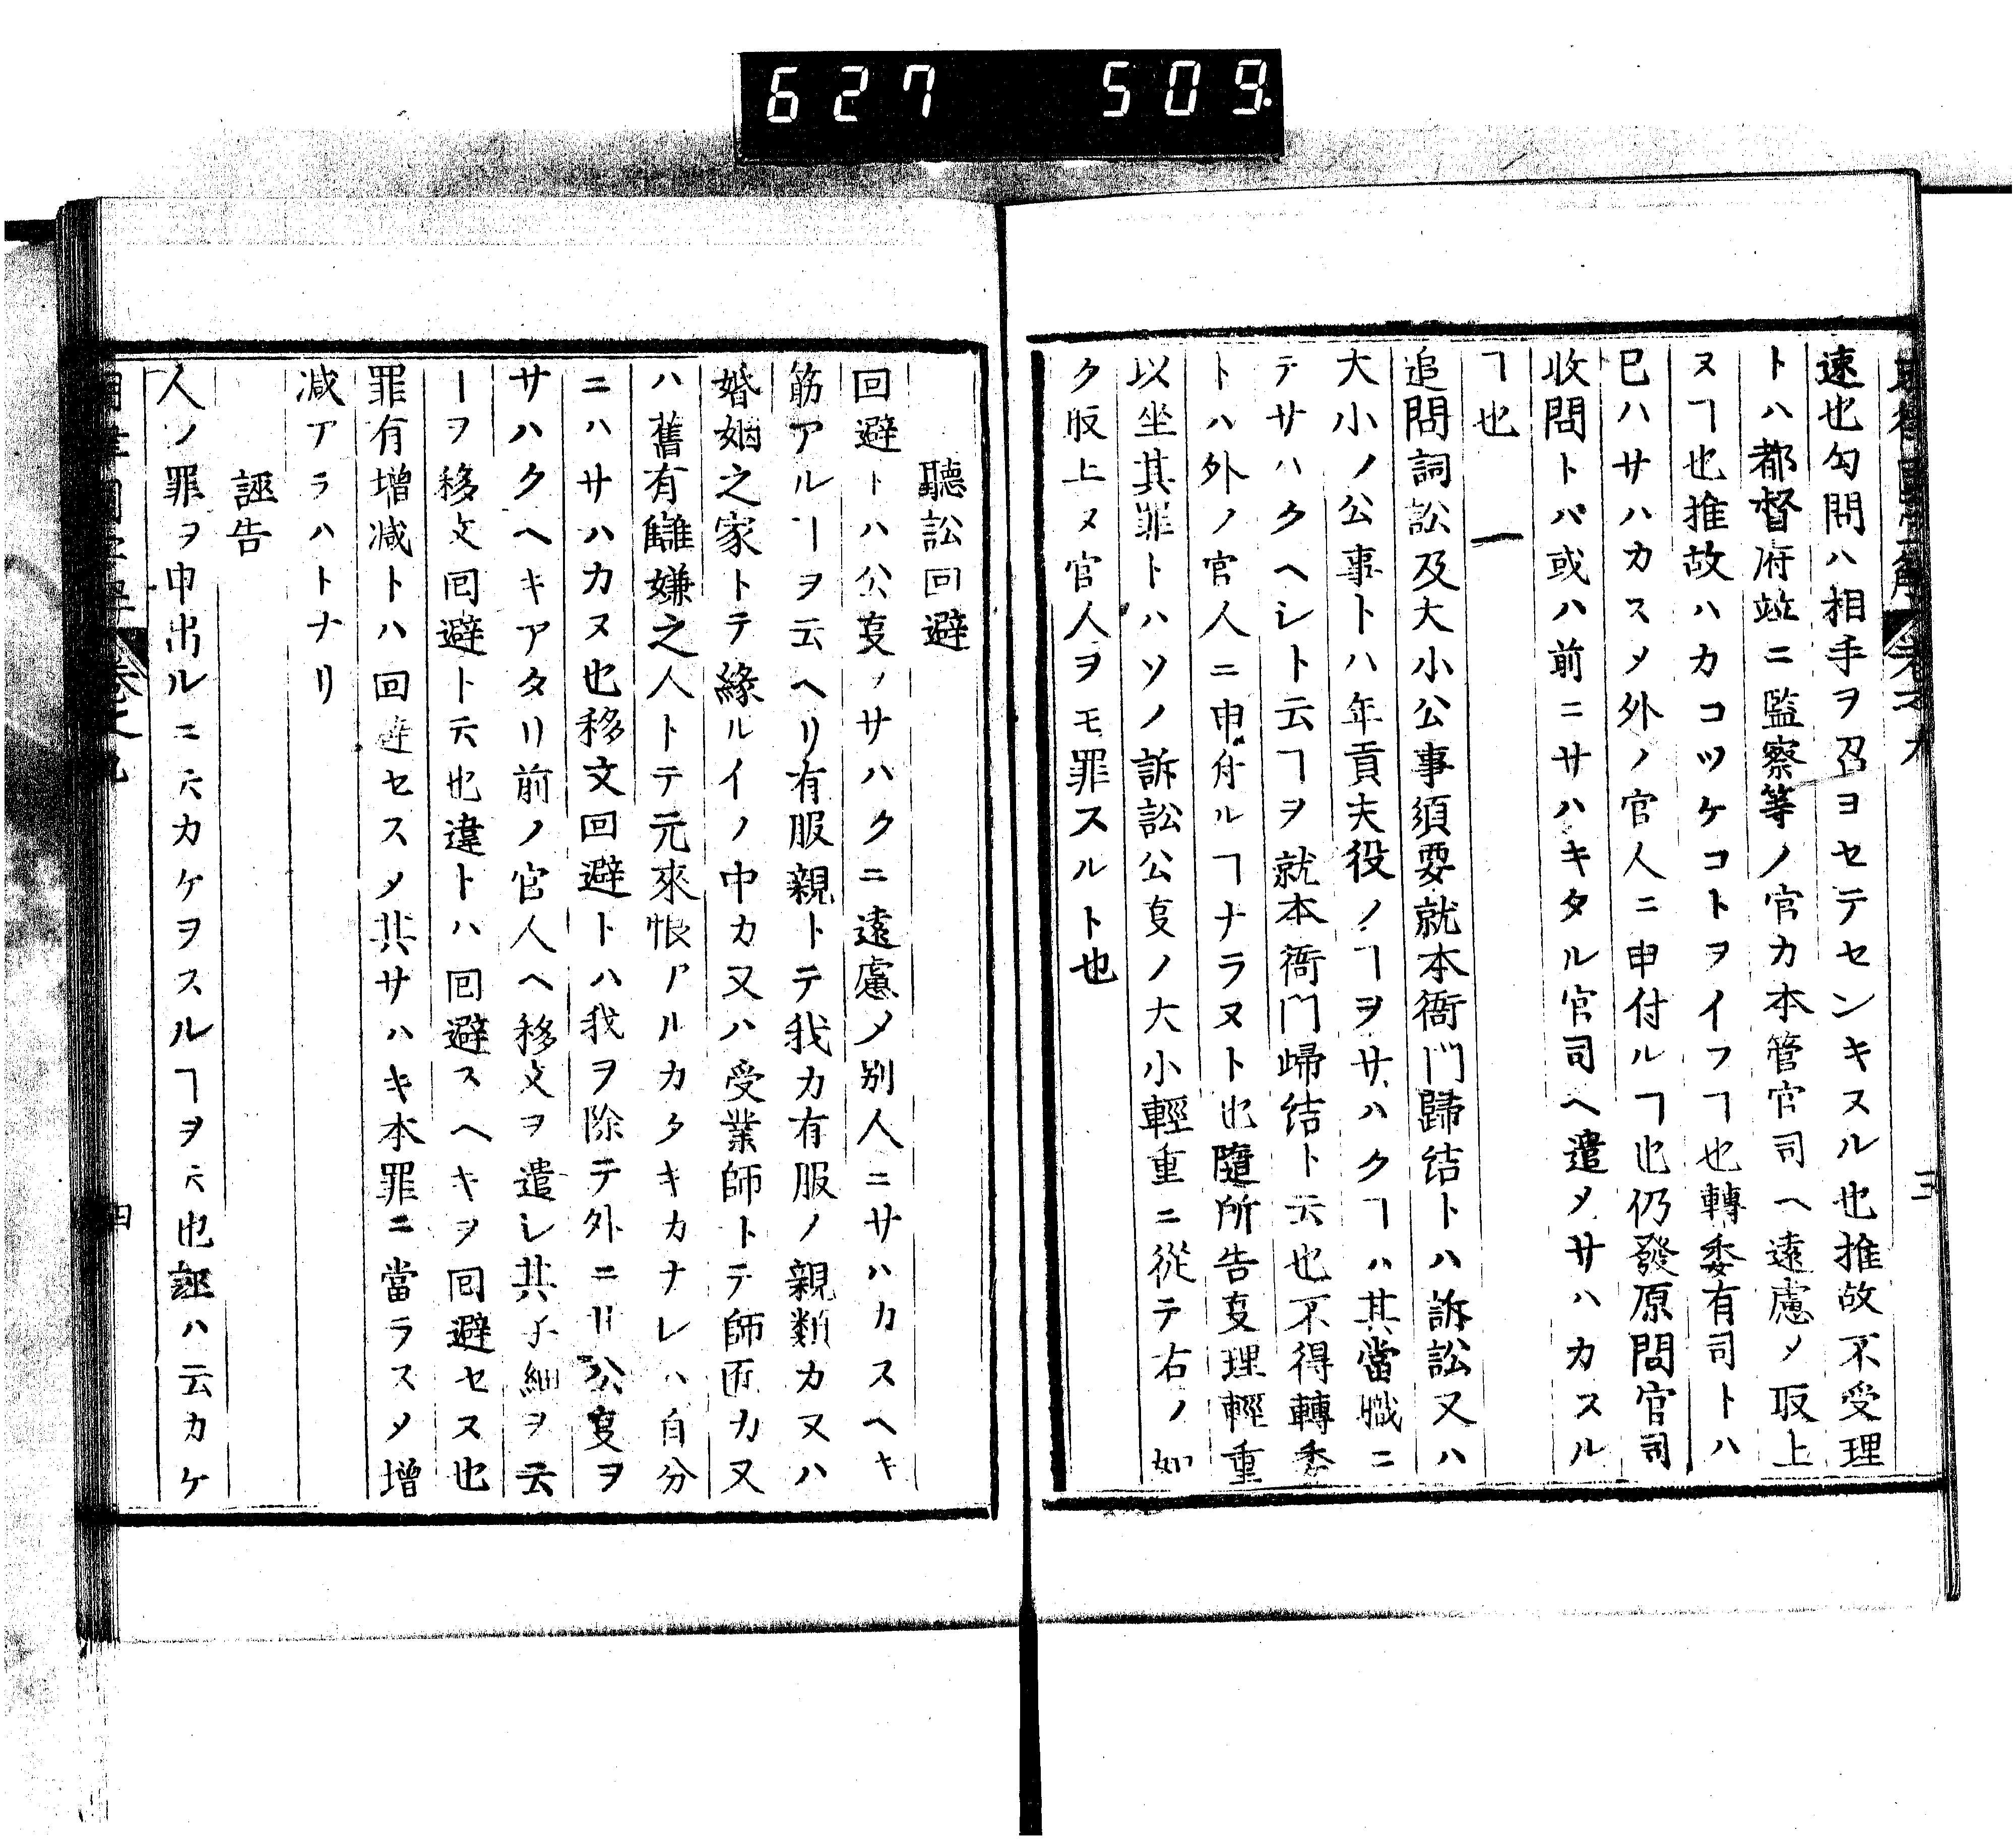 627 509
速也勾問ハ相手ヲ召ヨセテセンキスル也推故不受理
トハ都督府竝ニ監察等ノ官カ本管官司ヘ遠慮メ取上
ヌヿ也推故ハカコツケコトヲイフヿ也轉委有司トハ
已ハサハカスメ外ノ官人ニ申付ルヿ也仍發原問官司
收問トハ或ハ前ニサハキタル官司ヘ遣メサハカスル
ヿ也
追問詞訟及大小公事須要就本衙門歸结トハ訴訟又ハ
大小ノ公事トハ年貢夫役ノヿヲサハクヿハ其當職ニ
テサハクヘシト云ヿヲ就本衙門歸结ト云也不得轉委
トハ外ノ官人ニ申付ルヿナラヌト也隨所告叓理輕重
以坐其罪トハソノ訴訟公叓ノ大小輕重ニ從テ右ノ如
ク取上ヌ官人ヲモ罪スルト也
聽訟回避
回避トハ公叓ノサハクニ遠慮メ別人ニサハカスヘキ
筋アルヿヲ云ヘリ有服親トテ我カ有服ノ親類カ又ハ
婚姻之家トテ縁ルイノ中カ又ハ受業師トテ師匠カ又
ハ舊有讎嫌之人トテ元來恨アルカタキカナレハ自分
ニハサハカヌ也移文回避トハ我ヲ除テ外ニ公叓ヲ
サハクヘキアタリ前ノ官人ヘ移文ヲ遣シ其子細ヲ云
ヿヲ移文回避ト云也違トハ回避スヘキヲ回避セス也
罪有增减トハ回避セスメ其サハキ本罪ニ當ラスメ增
减アラハトナリ
誣告
人ノ罪ヲ申出ルニ云カケヲスルヿヲ云也誣ハ云カケ
四